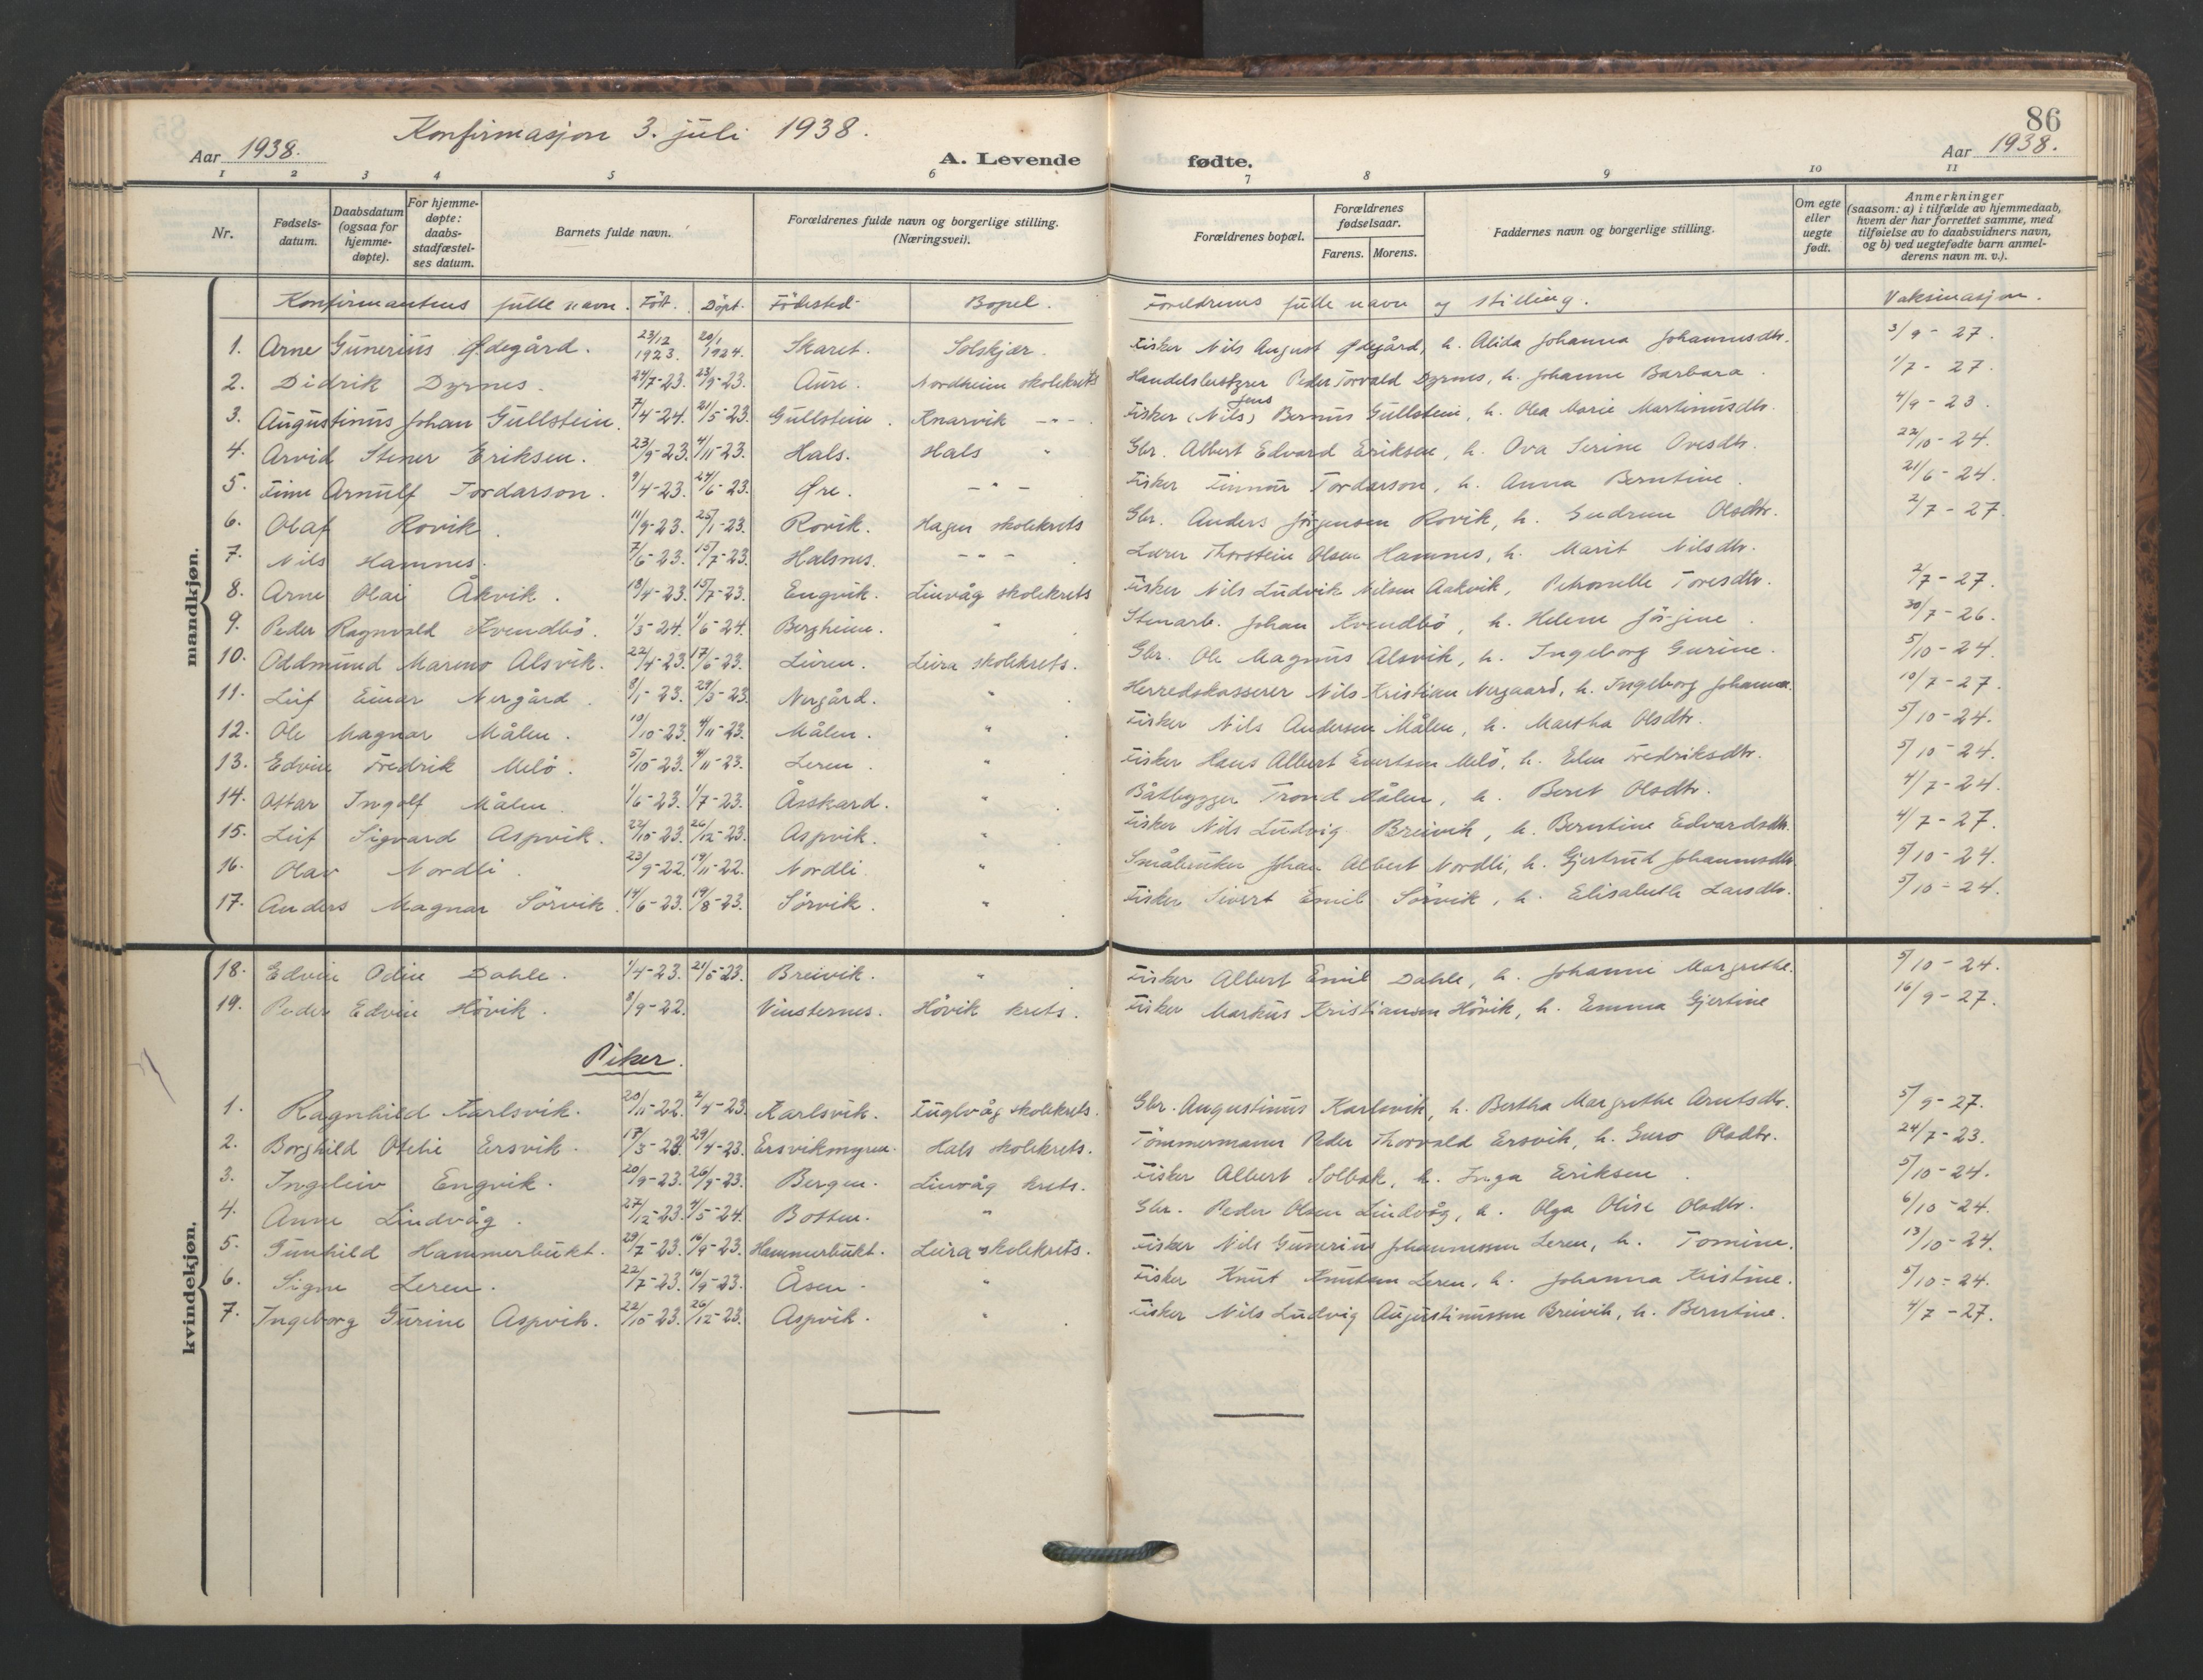 Konfirmasjon 3. juli 1938.
86
Aar 1938.
A. Levende fødte.
Aar 1938.
1 2 3 4 5 6 7 8 9 10 11
Nr. Fødsels-datum. Daabsdatum (ogsaa for hjemme-døpte). For hjemme-døpte: daabs-stadfæstel-ses datum. Barnets fulde navn. Forældrenes fulde navn og borgerlige stilling. (Næringsvei). Forældrenes bopæl. Forældrenes fødselsaar. Farens. Morens. Faddernes navn og borgerlige stilling. Om egte eller uegte født. Anmerkninger (saasom: a) i tilfælde av hjemmedaab, hvem der har forrettet samme, med tilføielse av to daabsvidners navn, og b) ved uegtefødte barn anmel-derens navn m. v.).
Konfirmantens fulle navn. Født. Døpt. Fødested Bopel. Foreldrenes fulle navn og stilling. Vaksinasjon.
mandkjøn.
1. Arne Gunerius Ødegård. 23/12 1923. 20/1 1924. Skaret. Solskjær. Fisker Nils August Ødegård, h. Alida Johanna Johannesdtr. 3/9-27.
2. Didrik Dyrnes. 24/7-23. 23/9-23. Aure. Nordheim skolekrets Handelsbestyrer Peder Torvald Dyrnes, h. Johanne Barbara. 1/7-27.
3. Augustinus Johan Gullstein. 7/4-24. 21/5-23. Gullstein. Knarvik -"-. Fisker (Nils) Jens Bernus Gullstein, h. Olea Marie Martinusdtr. 4/9-23.
4. Arvid Stener Eriksen. 23/9-23. 4/11-23. Hals. Hals " Gbr. Albert Edvard Eriksen, h. Ova Serine Ovesdtr. 22/10-24.
5. Finn Arnulf Tordarson. 9/4-23. 24/6-23. Øre. -"- Fisker Finnur Tordarson, h. Anna Berntine. 21/6-24.
6. Olaf Rovik. 11/9-23. 25/1-23. Rovik. Hagen skolekrets Gbr. Anders Jørgensen Rovik, h. Gudrun Olsdtr. 2/7-27.
7. Nils Hamnes. 7/6-23. 15/7-23. Halsnes. -"- Lærer Thorstein Olsen Hamnes, h. Marit Nilsdtr.
8. Arne Olai Åkvik. 18/4-23. 15/7-23. Engvik. Linvåg skolekrets Fisker Nils Ludvik Nilsen Aakvik, Petronelle Toresdtr. 2/7-27.
9. Peder Ragnvald Kvendbö. 1/3-24. 1/6-24. Bergheim. " Stenarb. Johan Kvendbö, h. Helene Jörgine. 30/7-26.
10. Oddmund Mareno Alsvik. 22/4-23. 17/6-23. Leiren. Leira skolekrets. Gbr. Ole Magnus Alsvik, h. Ingeborg Gurine. 5/10-24.
11. Leif Einar Nergård. 8/1-23. 29/3-23. Nergård. " Herredskasserer Nils Kristian Nergaard, h. Ingeborg Johanna. 10/7-27.
12. Ole Magnar Målen. 10/10-23. 4/11-23. Målen. " Fisker Nils Andersen Målen, h. Martha Olsdtr. 5/10-24.
13. Edvin Fredrik Melö. 5/10-23. 4/11-23. Leren. " Fisker Hans Albert Evertsen Melö, h. Elen Fredriksdtr. 5/10-24.
14. Ottar Ingolf Målen. 1/6-23. 1/7-23. Åsskard. " Båtbygger Trond Målen, h. Beret Olsdtr. 4/7-24.
15. Leif Sigvard Aspvik. 22/10-23. 26/12-23. Aspvik. " Fisker Nils Ludvig Breivik, h. Berntine Edvardsdtr. 4/7-27.
16. Olav Nordli. 23/9-22. 19/11-22. Nordli. " Småbruker Johan Albert Nordli, h. Gjertrud Johannesdtr. 5/10-24.
17. Anders Magnar Sörvik. 14/6-23. 19/8-23. Sörvik. " Fisker Sivert Emil Sörvik, h. Elisabeth Larsdtr. 5/10-24.
18. Edvin Odin Dahle. 1/4-23. 21/5-23. Breivik. " Fisker Albert Emil Dahle, h. Johanne Margrethe. 5/10-24.
19. Peder Edvin Hövik. 8/9-22. Vinsternes. Hövik krets. Fisker Markus Kristiansen Hövik, h. Emma Gjertine 16/9-27.
Piker.
kvindekjøn.
1. Ragnhild Karlsvik. 20/11-22. 2/4-23. Karlsvik. Fuglvåg skolekrets. Gbr. Augustinus Karlsvik, h. Bertha Margrethe Arntsdtr. 5/9-27.
2. Borghild Otelie Ersvik. 17/3-23. 29/4-23. Ersvikmyren. Hals skolekrets. Tömmermann Peder Thorvald Ersvik, h. Guro Olsdtr. 24/7-23.
3. Ingeleiv Engvik. 20/9-23. 26/9-23. Bergen. Linvåg krets. Fisker Albert Solbak, h. Inga Eriksen. 5/10-24.
4. Anne Lindvåg. 27/12-23. 4/5-24. Botten. " Gbr. Peder Olsen Lindvåg, h. Olga Olise Olsdtr. 6/10-24.
5. Gunhild Hammerbukt. 29/7-23. 16/9-23. Hammerbukt. Leira skolekrets. Fisker Nils Gunerius Johannessen Leren, h. Tomine. 13/10-24.
6. Signe Leren. 22/7-23. 16/9-23. Åsen. " Fisker Knut Knutsen Leren, h. Johanna Kristine. 5/10-24.
7. Ingeborg Gurine Aspvik. 22/10-23. 26/12-23. Aspvik. " Fisker Nils Ludvig Augustinussen Breivik, h. Berntine. 4/7-27.